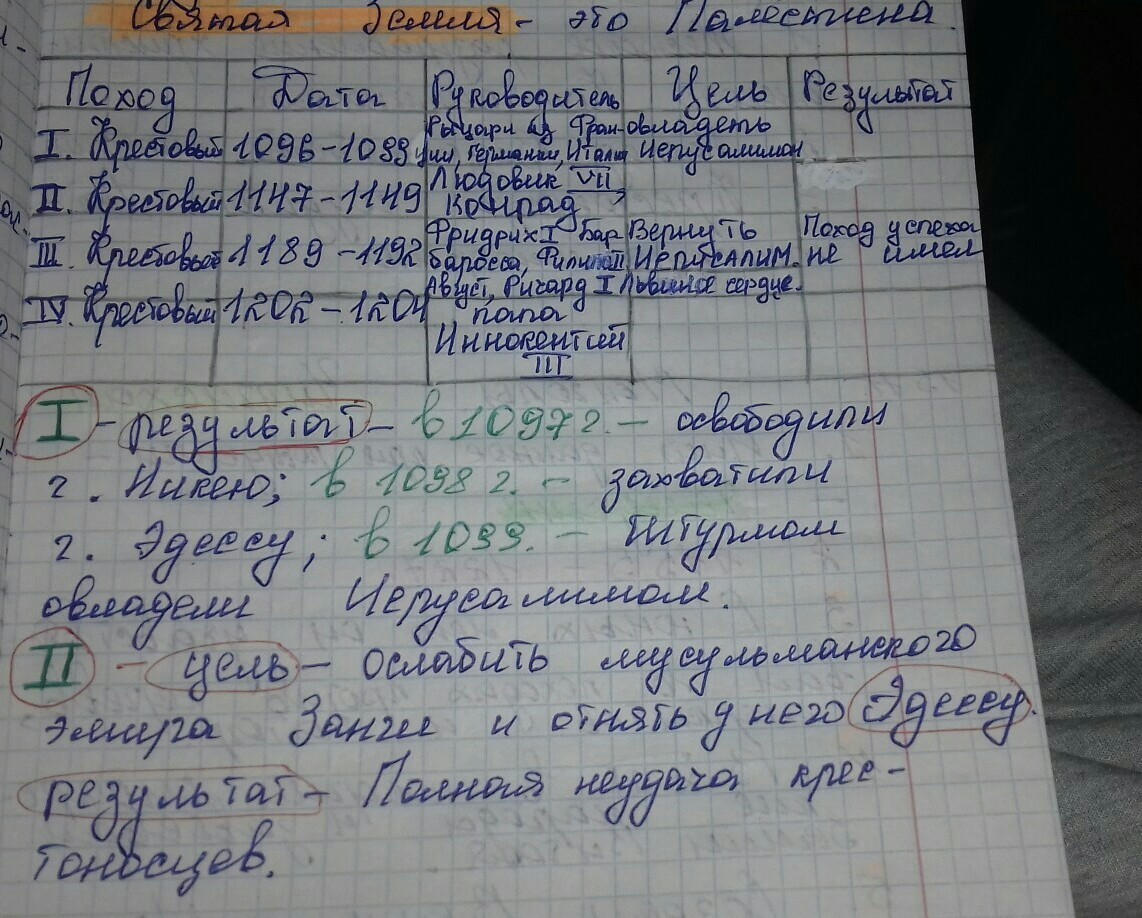 Святая Земля - это Палестина
Поход Дата Руководитель Цель Результат
I. Крестовый 1096-1099 Рыцари из Фран- овладеть
ции, Германии, Италии Иерусалимом
II. Крестовый 1147-1149 Людовик VII,
Конрад
III. Крестовый 1189-1192 Фридрих I Бар Вернуть Поход успеха
баросса, Филипп II Иерусалим. не имел
Август, Ричард I Львиное сердце.
IV. Крестовый 1202-1204 папа
Иннокентий
III
I - результат - в 1097 г. - освободили
г. Никею; в 1098 г. - захватили
г. Эдессу; в 1099. - Штурмом
овладели Иерусалимом.
II - цель - ослабить мусульманского
эмира Занги и отнять у него Эдессу.
результат - Полная неудача крес-
тоносцев.